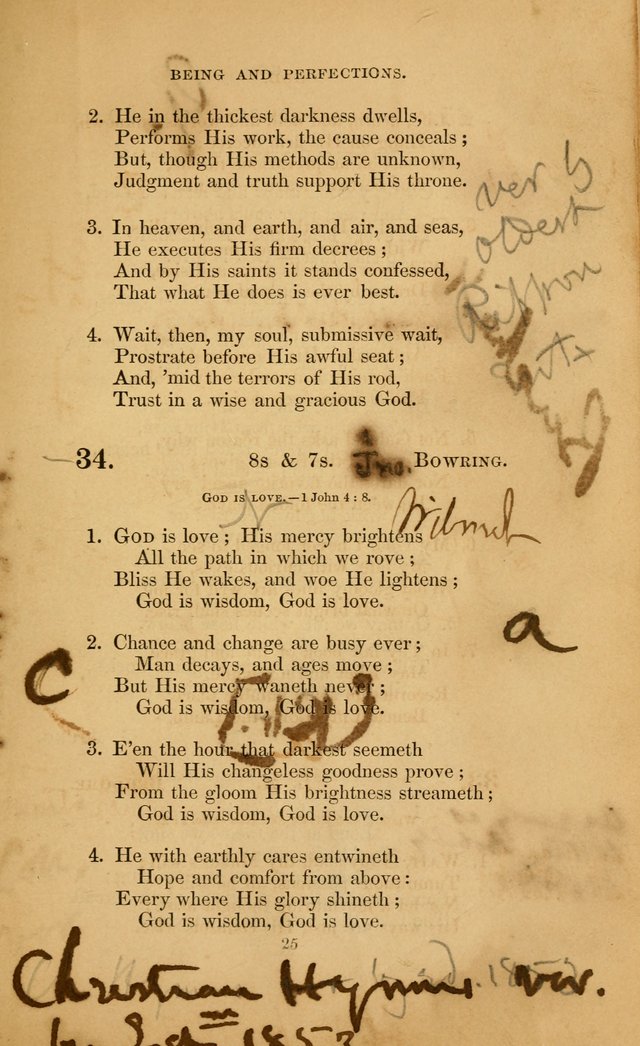 BEING AND PERFECTIONS.
2. He in the thickest darkness dwells,
Performs His work, the cause conceals;
But, though His methods are unknown,
Judgment and truth support His throne.
3. In heaven, and earth, and air, and seas,
He executes His firm decrees;
And by His saints it stands confessed,
That what He does is ever best.
4. Wait, then, my soul, submissive wait,
Prostrate before His awful seat;
And, 'mid the terrors of His rod,
Trust in a wise and gracious God.
ver by
oldest
Rippon
34. 8s & 7s. Jno. BOWRING.
GOD IS LOVE.—1 John 4 : 8.
1. GOD is love; His mercy brightens
All the path in which we rove;
Bliss He wakes, and woe He lightens;
God is wisdom, God is love.
a
2. Chance and change are busy ever;
Man decays, and ages move;
C
But His mercy waneth never;
God is wisdom, God is love.
3. E'en the hour that darkest seemeth
Will His changeless goodness prove;
From the gloom His brightness streameth;
God is wisdom, God is love.
4. He with earthly cares entwineth
Hope and comfort from above:
Every where His glory shineth;
God is wisdom, God is love.
25
Christian Hymns ver.
1853